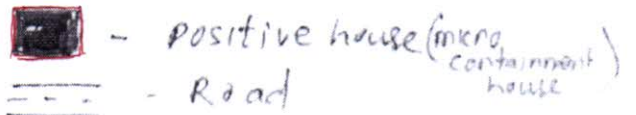 - Positive house (micro containment house)
- Road